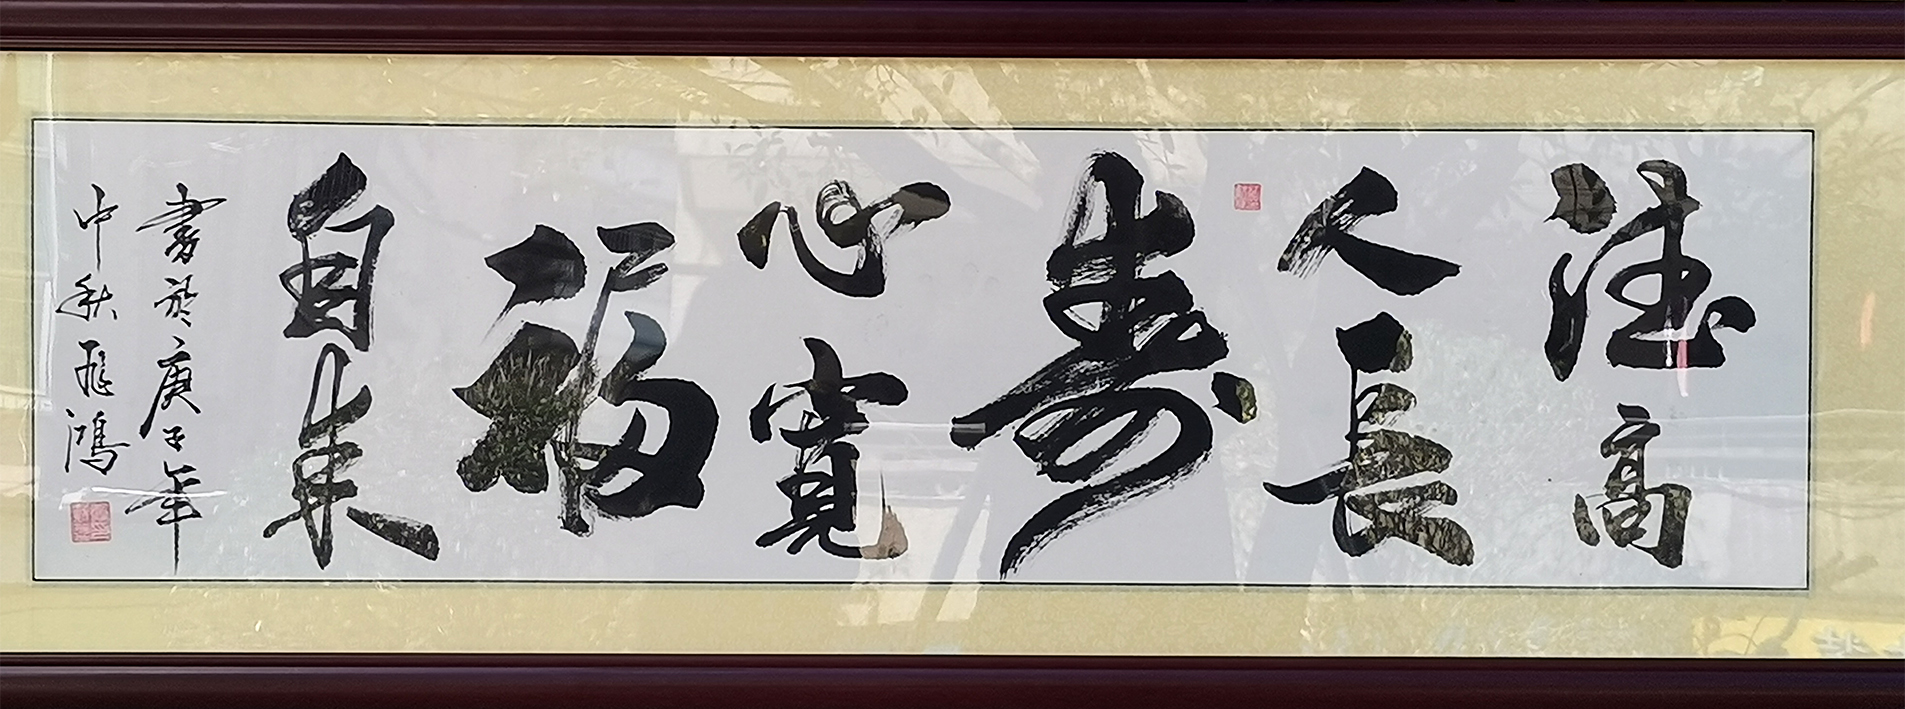 德高
人長
寿
心寬
福
自来
書於庚子年
中秋飛鴻